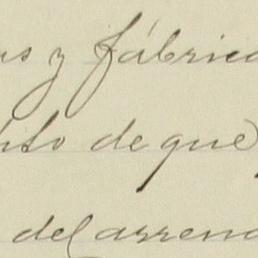 y fábrica
de que
del arren